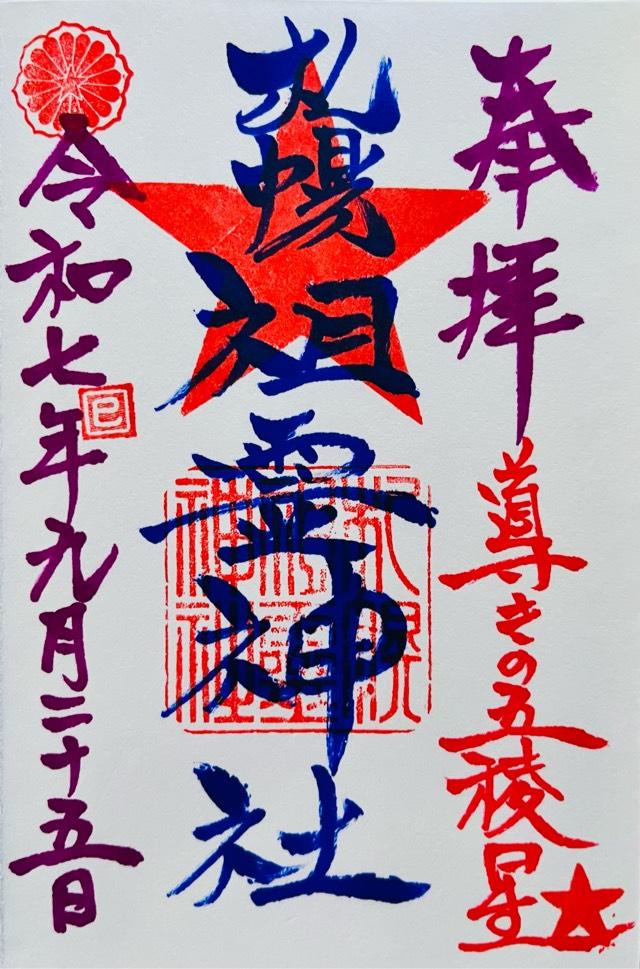 奉拝
導きの五稜星
札幌祖霊神社
札幌祖霊神社
令和七年九月二十五日
巳